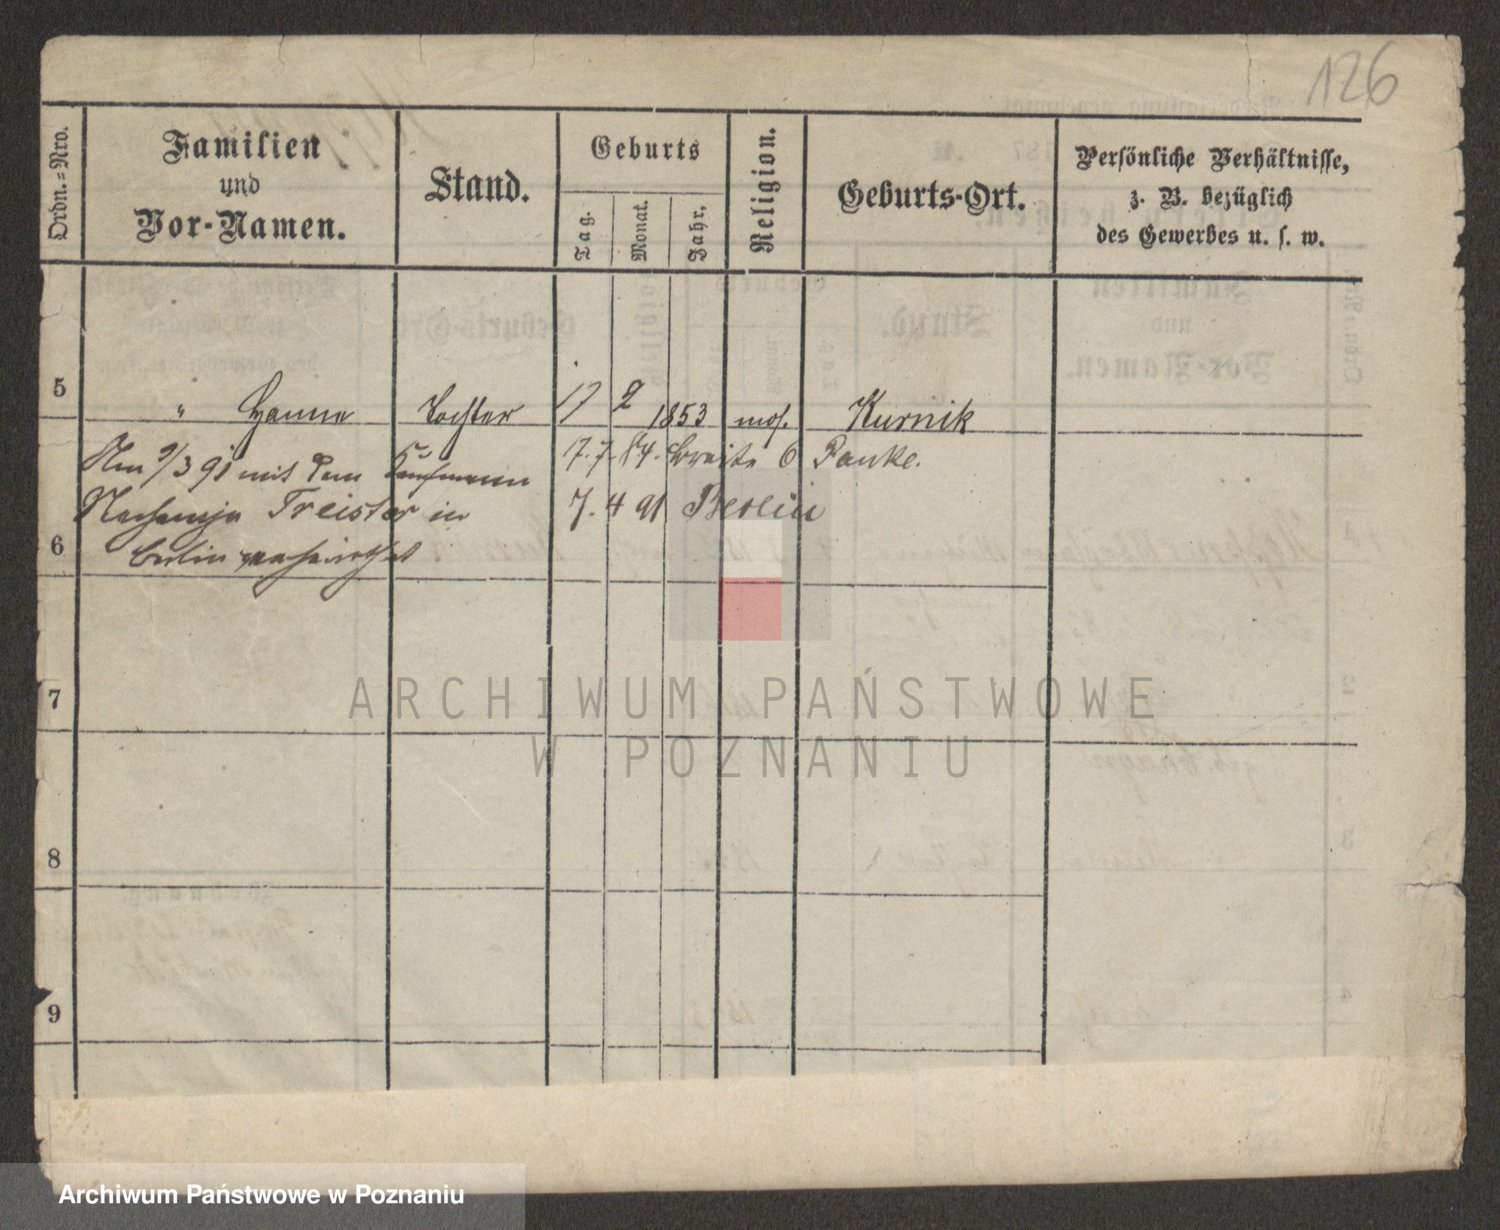 126
Ordn.=Nro.
Familien
und
Vor-Namen.
Stand.
Geburts
Tag.
Monat.
Jahr.
Religion.
Geburts-Ort.
Persönliche Verhältnisse,
z. B. bezüglich
des Gewerbes u. s. w.
5 " Hanne Tochter 17 2 1853 mos. Kurnik
Am 9/3 91 mit dem Kaufmann 17. 7. 84. Breite 6 Panke.
Treister in 7. 4 91 Berlin
6 Berlin verheirathet
7
8
9
ARCHIWUM PAŃSTWOWE
W POZNANIU
Archiwum Państwowe w Poznaniu